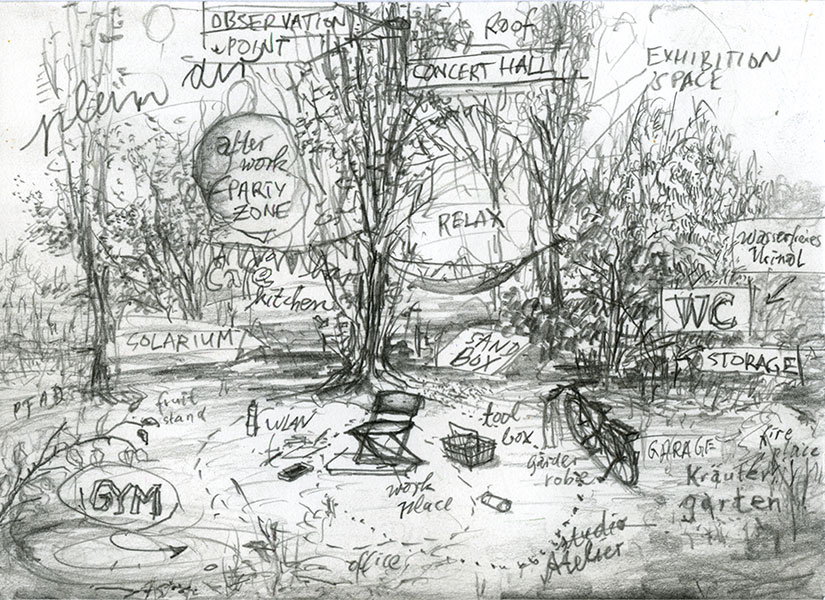 OBSERVATION
POINT
Roof
CONCERT HALL
EXHIBITION
SPACE
plein air
after
work
PARTY
ZONE
RELAX
Wasserfreies
Urinal
Café
bar
kitchen
WC
SOLARIUM
SAND
BOX
STORAGE
PFAD
fruit
stand
WLAN
tool
box
GARAGE
fire
place
garde
robe
Kräuter
garten
GYM
work
place
studio
Atelier
office